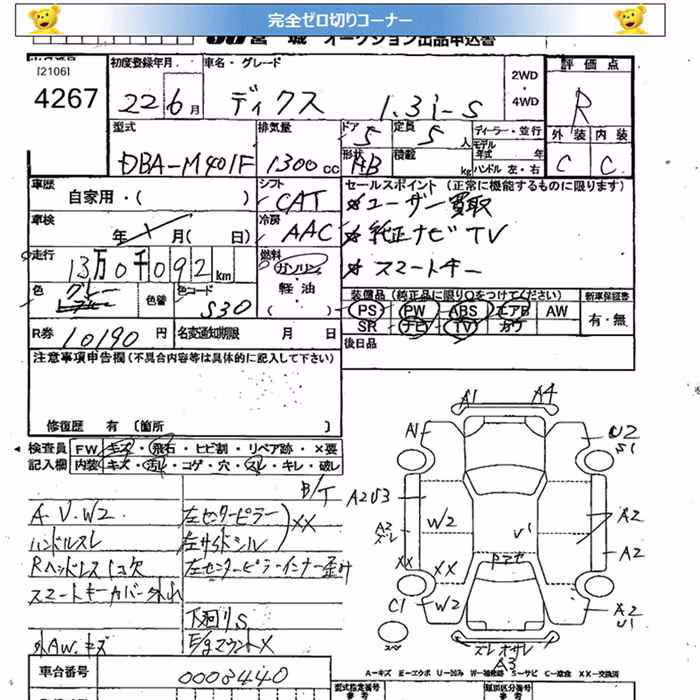 完全ゼロ切りコーナー
宮城 オークション出品申込書
[2106]
4267
初度登録年月
22 6月
車名・グレード
ディクス 1.3i-S
2WD・4WD
評価点
R
型式
DBA-M401F
排気量
1300cc
ドア
5
定員
5人
ディーラー・並行
モデル年式 年
外装 内装
C C
形状
HB
積載 kg
ハンドル 左・右
車歴
自家用・( )
シフト
CAT
セールスポイント (正常に機能するものに限ります)
☆ユーザー買取
☆純正ナビTV
☆スマートキー
車検
年 月( 日)
冷房
AAC
走行
13万0千092km
燃料
ガソリン
軽・油
色
グレー
色替
色コード
S30
装備品(純正品に限り○をつけてください)
新車保証書
PS PW ABS エアB AW
有・無
SR ナビ TV カワ
R券
10190円
名変通知期限 月 日
後日品
注意事項申告欄(不具合内容等は具体的に記入して下さい)
修復歴 有 〔箇所 〕
検査員
記入欄
FW キズ・飛石・ヒビ割・リペア跡・×要
内装 キズ・汚れ・コゲ・穴・スレ・キレ・破レ
B/T
A.V.W2
左センターピラー
左サイドシル
XX
ハンドルスレ
Rヘッドレスト1コ欠
左センターピラーインナー歪み
スマートキーカバー外れ
下廻りS
外AW.キズ
E/gマウントX
車台番号
0003440
A1 A4
A1 U2
S1
A2U3
W2 V1 A2
A2
スレ
A2
XX XX
C1 W2
A2
U1
スレ
A3
A-キズ E-エクボ U-凹み W-補修跡 S-サビ C-腐食 XX-交換済
型式指定番号
参考
類別区分番号
参考